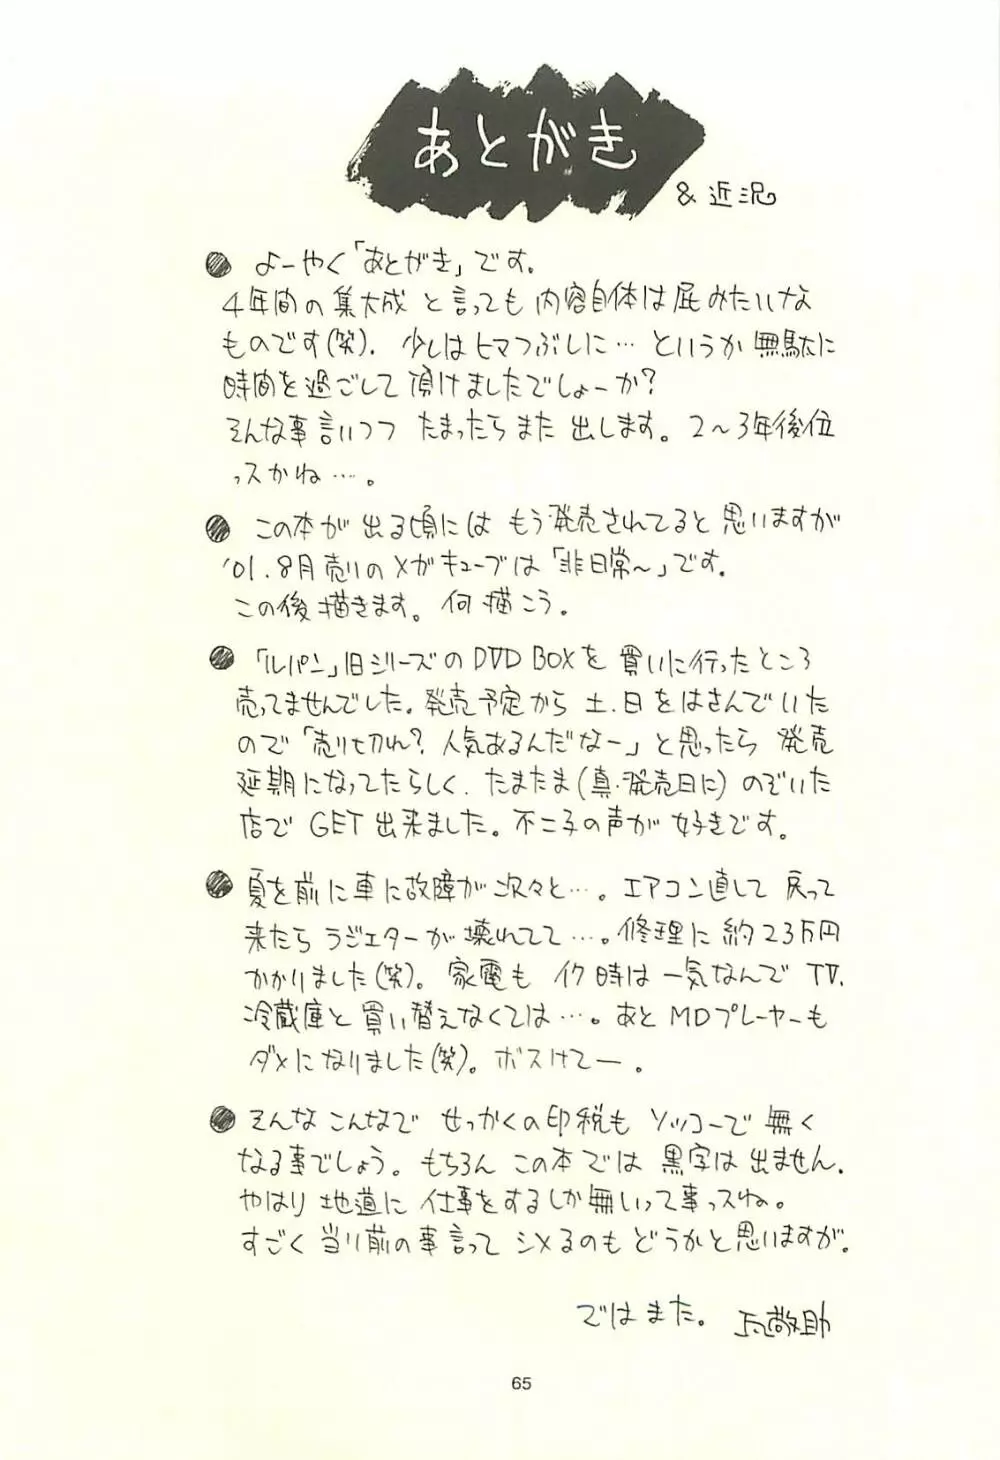 あとがき
&近況
● よーやく「あとがき」です。
4年間の集大成と言っても内容自体は屁みたいな
ものです(笑)。少しはヒマつぶしに…というか無駄に
時間を過ごして頂けましたでしょーか?
そんな事言いつつ たまったらまた出します。2〜3年後位
っスかね…。
● この本が出る頃にはもう発売されてると思いますが
'01.8月売りのメガキューブは「非日常〜」です。
この後描きます。何描こう。
● 「ルパン」旧シリーズのDVD BOXを買いに行ったところ
売ってませんでした。発売予定から土.日をはさんでいた
ので「売り切れ?人気あるんだなー」と思ったら発売
延期になってたらしく.たまたま(真・発売日に)のぞいた
店でGET出来ました。不二子の声が好きです。
● 夏を前に車に故障が次々と…。エアコン直して戻って
来たらラジエターが壊れてて…。修理に約23万円
かかりました(笑)。家電もイク時は一気なんでTV.
冷蔵庫と買い替えなくては…。あとMDプレーヤーも
ダメになりました(笑)。ボスけてー。
● そんなこんなでせっかくの印税もソッコーで無く
なる事でしょう。もちろんこの本では黒字は出ません.
やはり地道に仕事をするしか無いって事っスね。
すごく当り前の事言ってシメるのもどうかと思いますが。
ではまた。
65